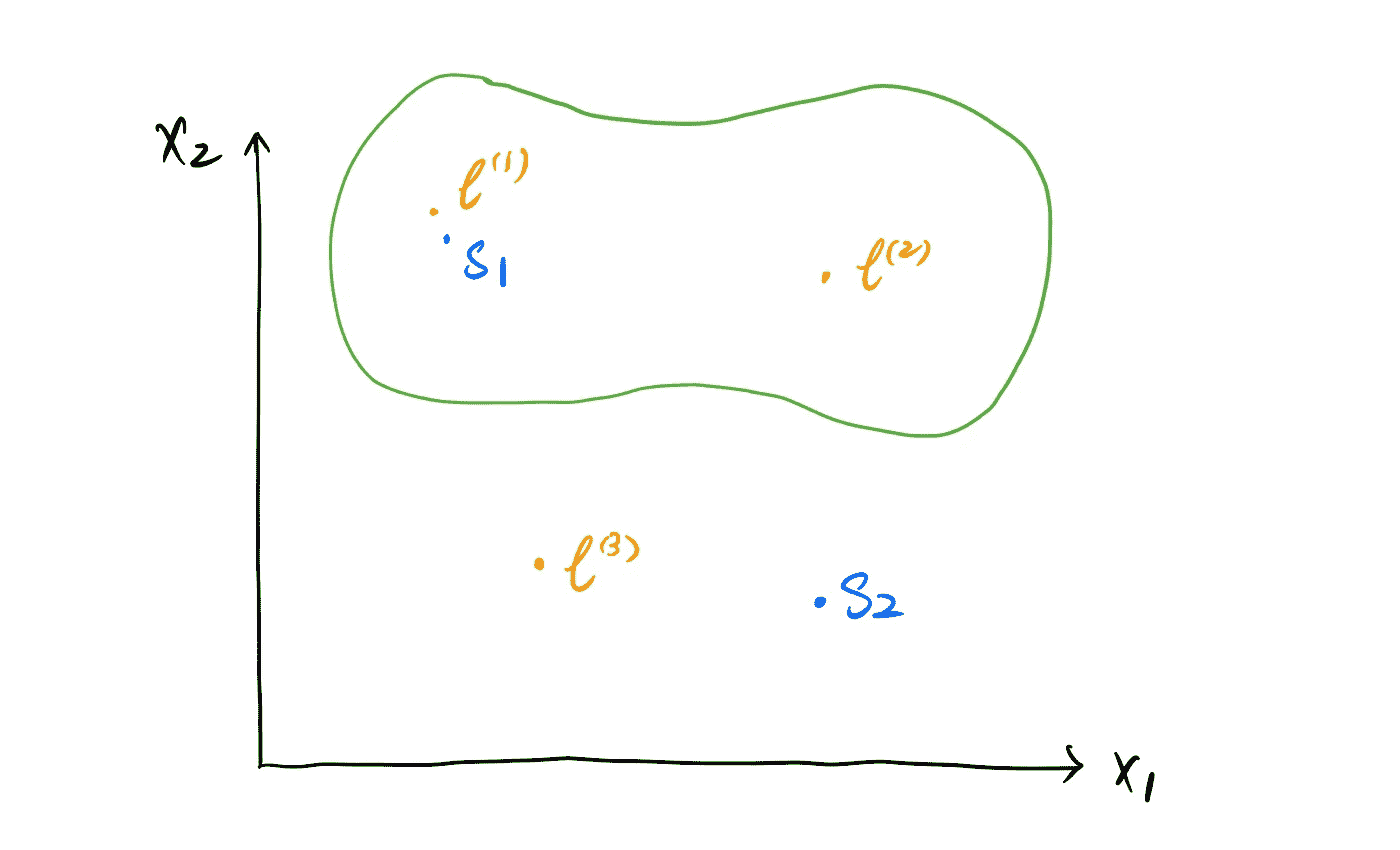 X₂
ℓ⁽¹⁾
S₁
ℓ⁽²⁾
ℓ⁽³⁾
S₂
X₁